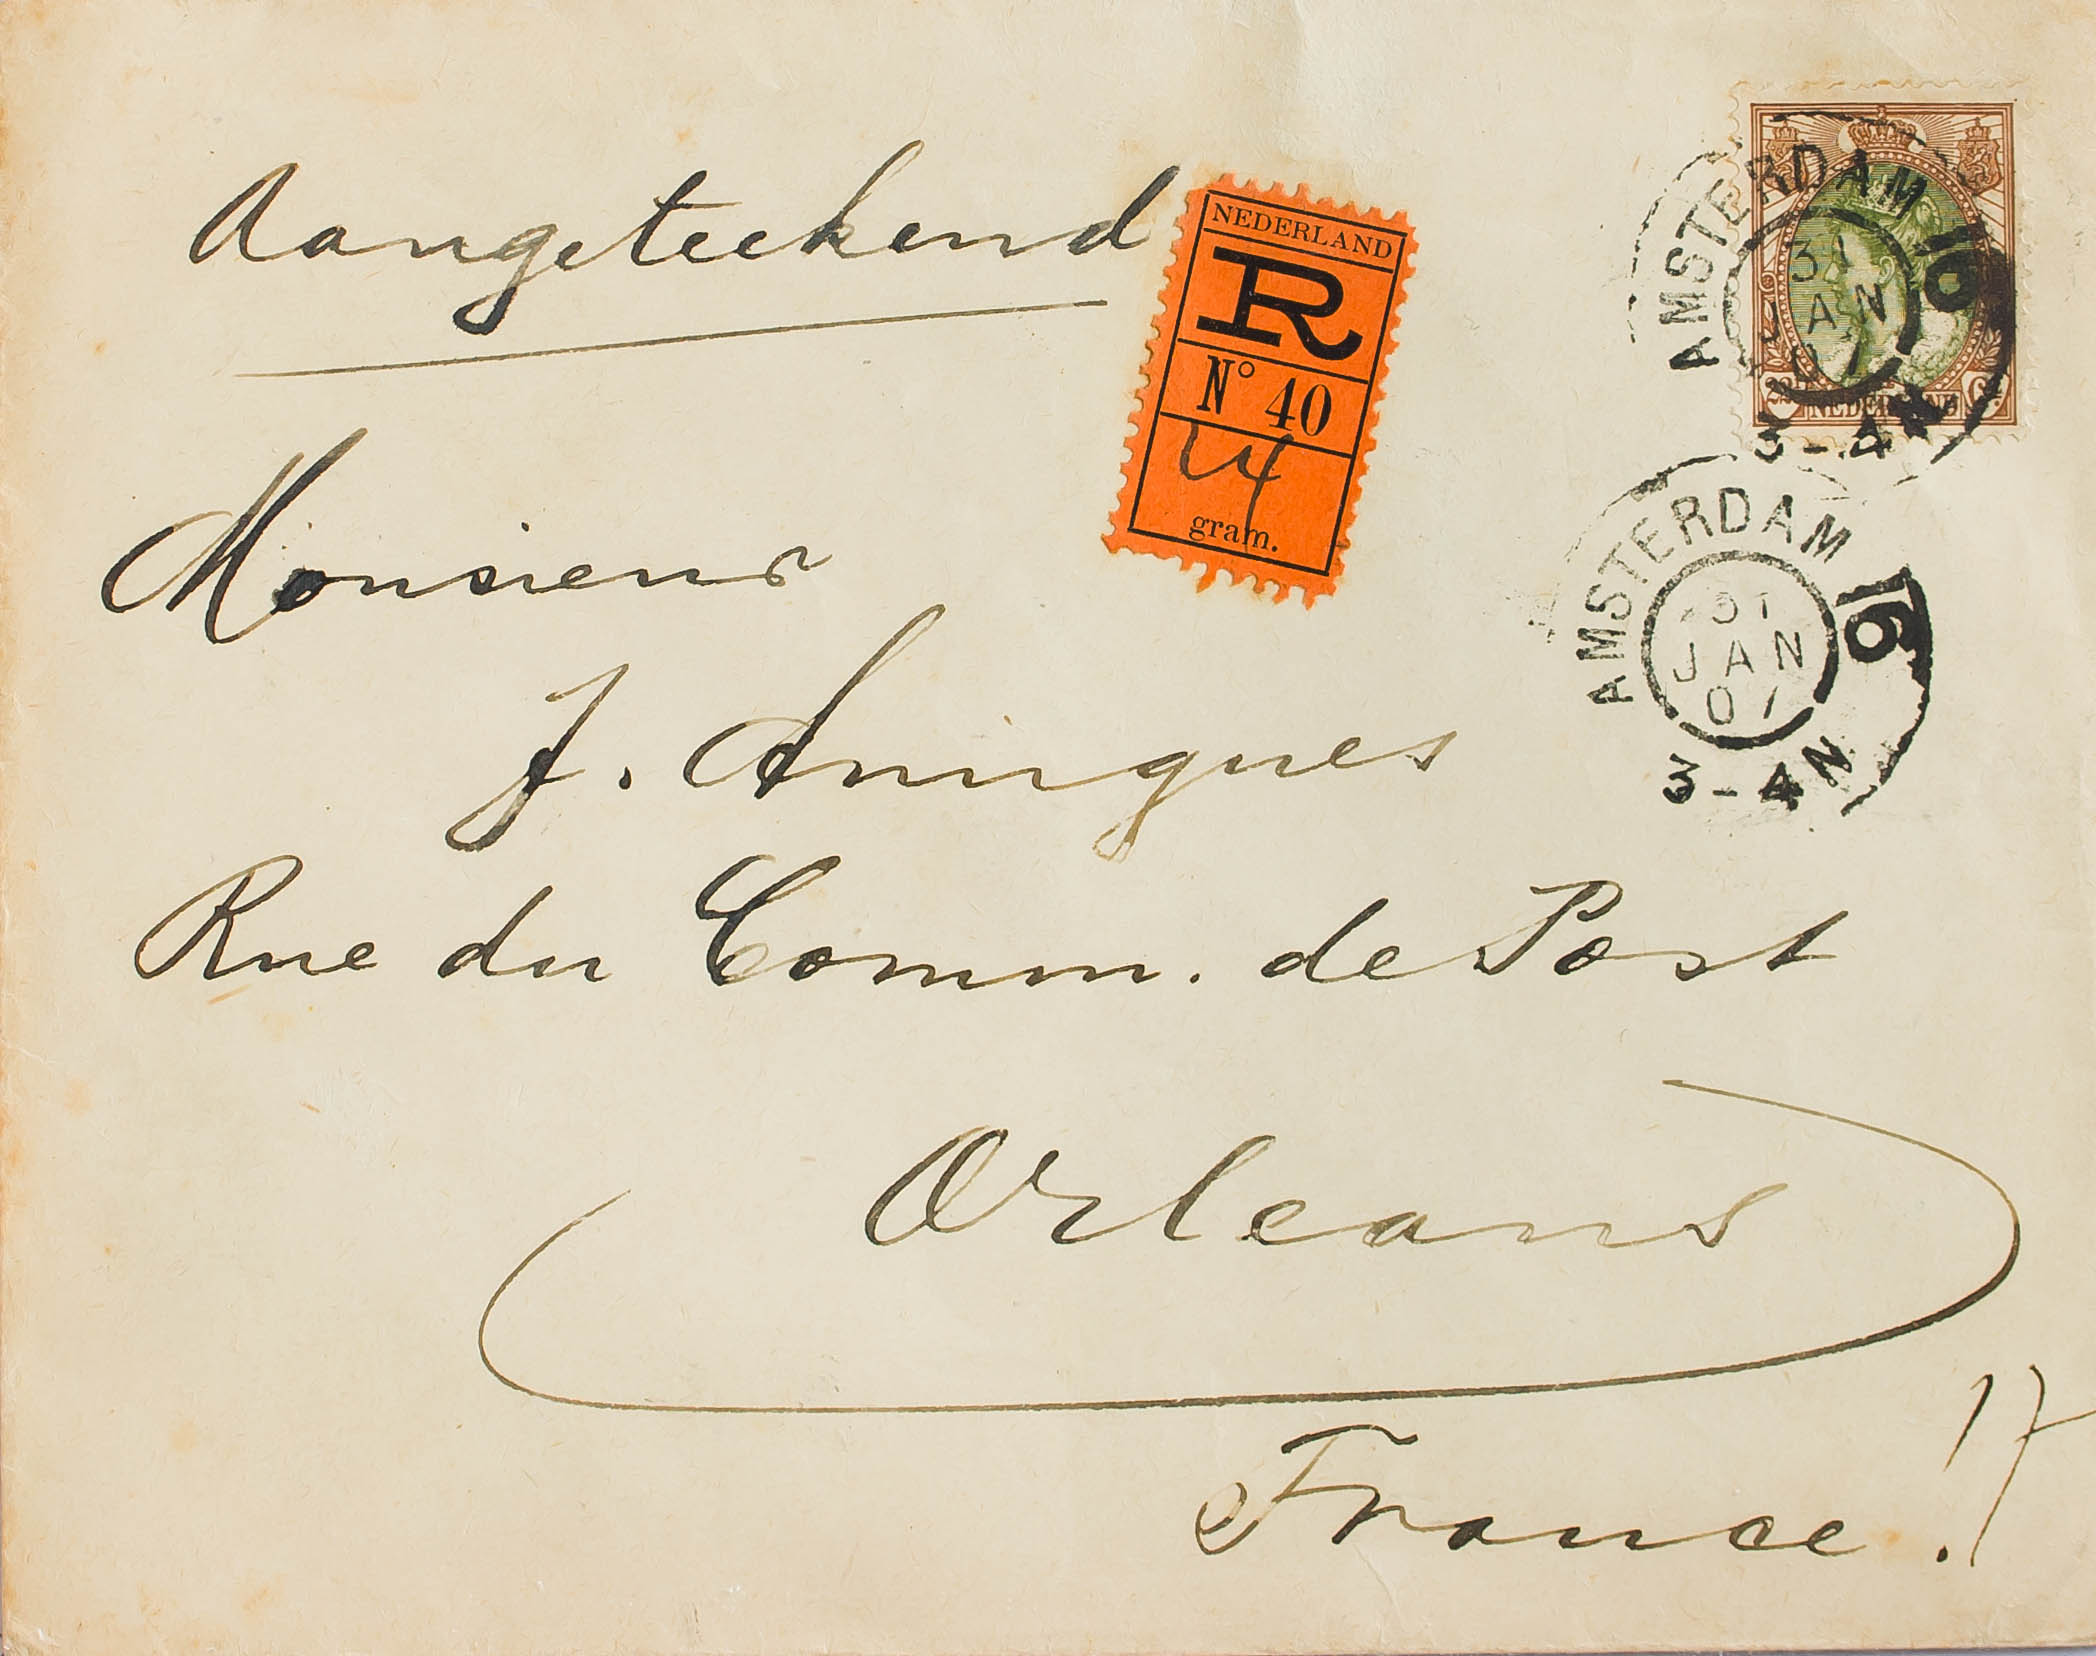 Aangeteekend
NEDERLAND
R
Nº 40
14
gram.
AMSTERDAM 16
31
JAN
01
3-4N
NEDERLAND
AMSTERDAM 16
31
JAN
01
3-4N
Monsieur
J.
Rue du Comm. de Post
Orleans
France!